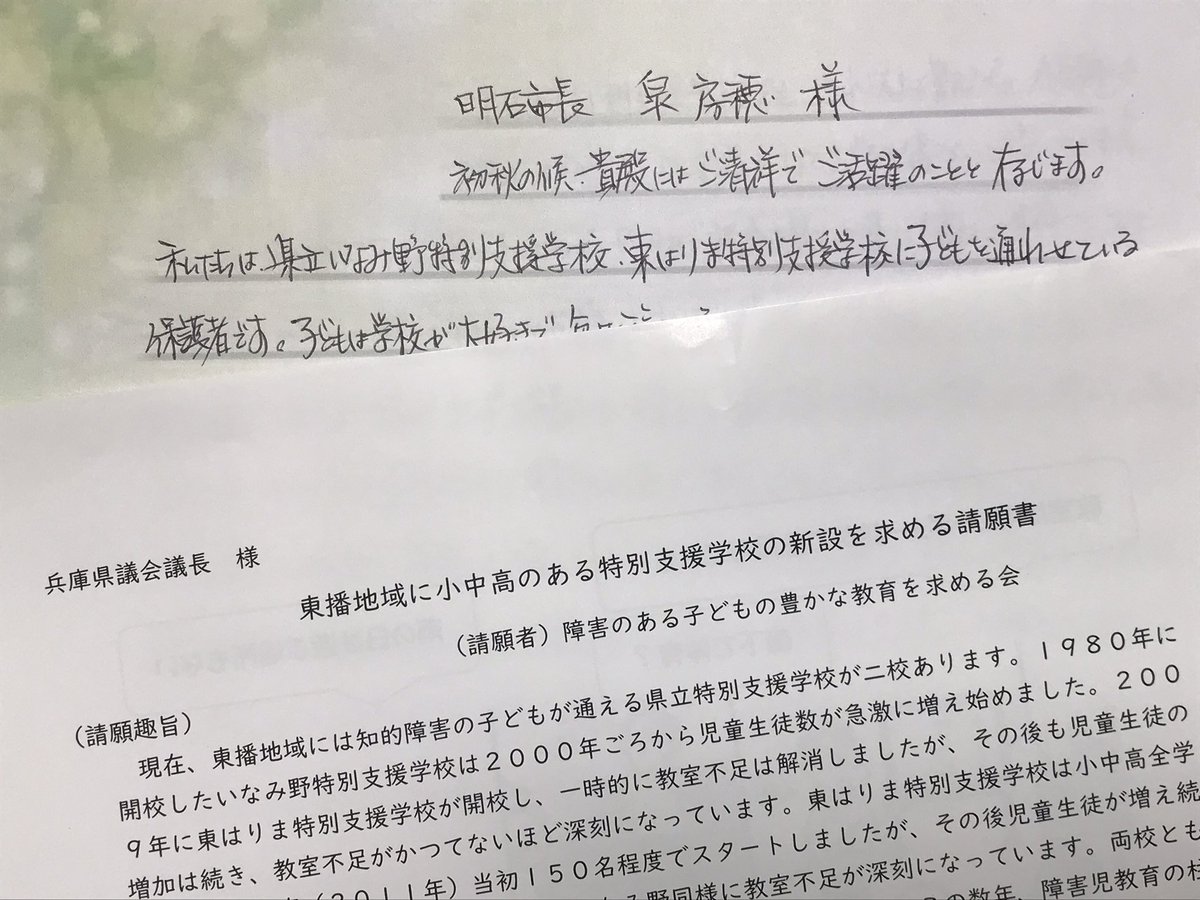 明石市長 泉 房穂 様
初秋の候、貴殿にはご清祥でご活躍のことと存じます。
私たちは、県立いなみ野特別支援学校、東はりま特別支援学校に子どもを通わせている
保護者です。子どもは学校が大好きで
兵庫県議会議長 様
東播地域に小中高のある特別支援学校の新設を求める請願書
（請願者）障害のある子どもの豊かな教育を求める会
（請願趣旨）
現在、東播地域には知的障害の子どもが通える県立特別支援学校が二校あります。１９８０年に
開校したいなみ野特別支援学校は２０００年ごろから児童生徒数が急激に増え始めました。２００
９年に東はりま特別支援学校が開校し、一時的に教室不足は解消しましたが、その後も児童生徒の
増加は続き、教室不足がかつてないほど深刻になっています。東はりま特別支援学校は小中高全学
（２０１１年）当初１５０名程度でスタートしましたが、その後児童生徒が増え続
野同様に教室不足が深刻になっています。両校とも
の数年、障害児教育の